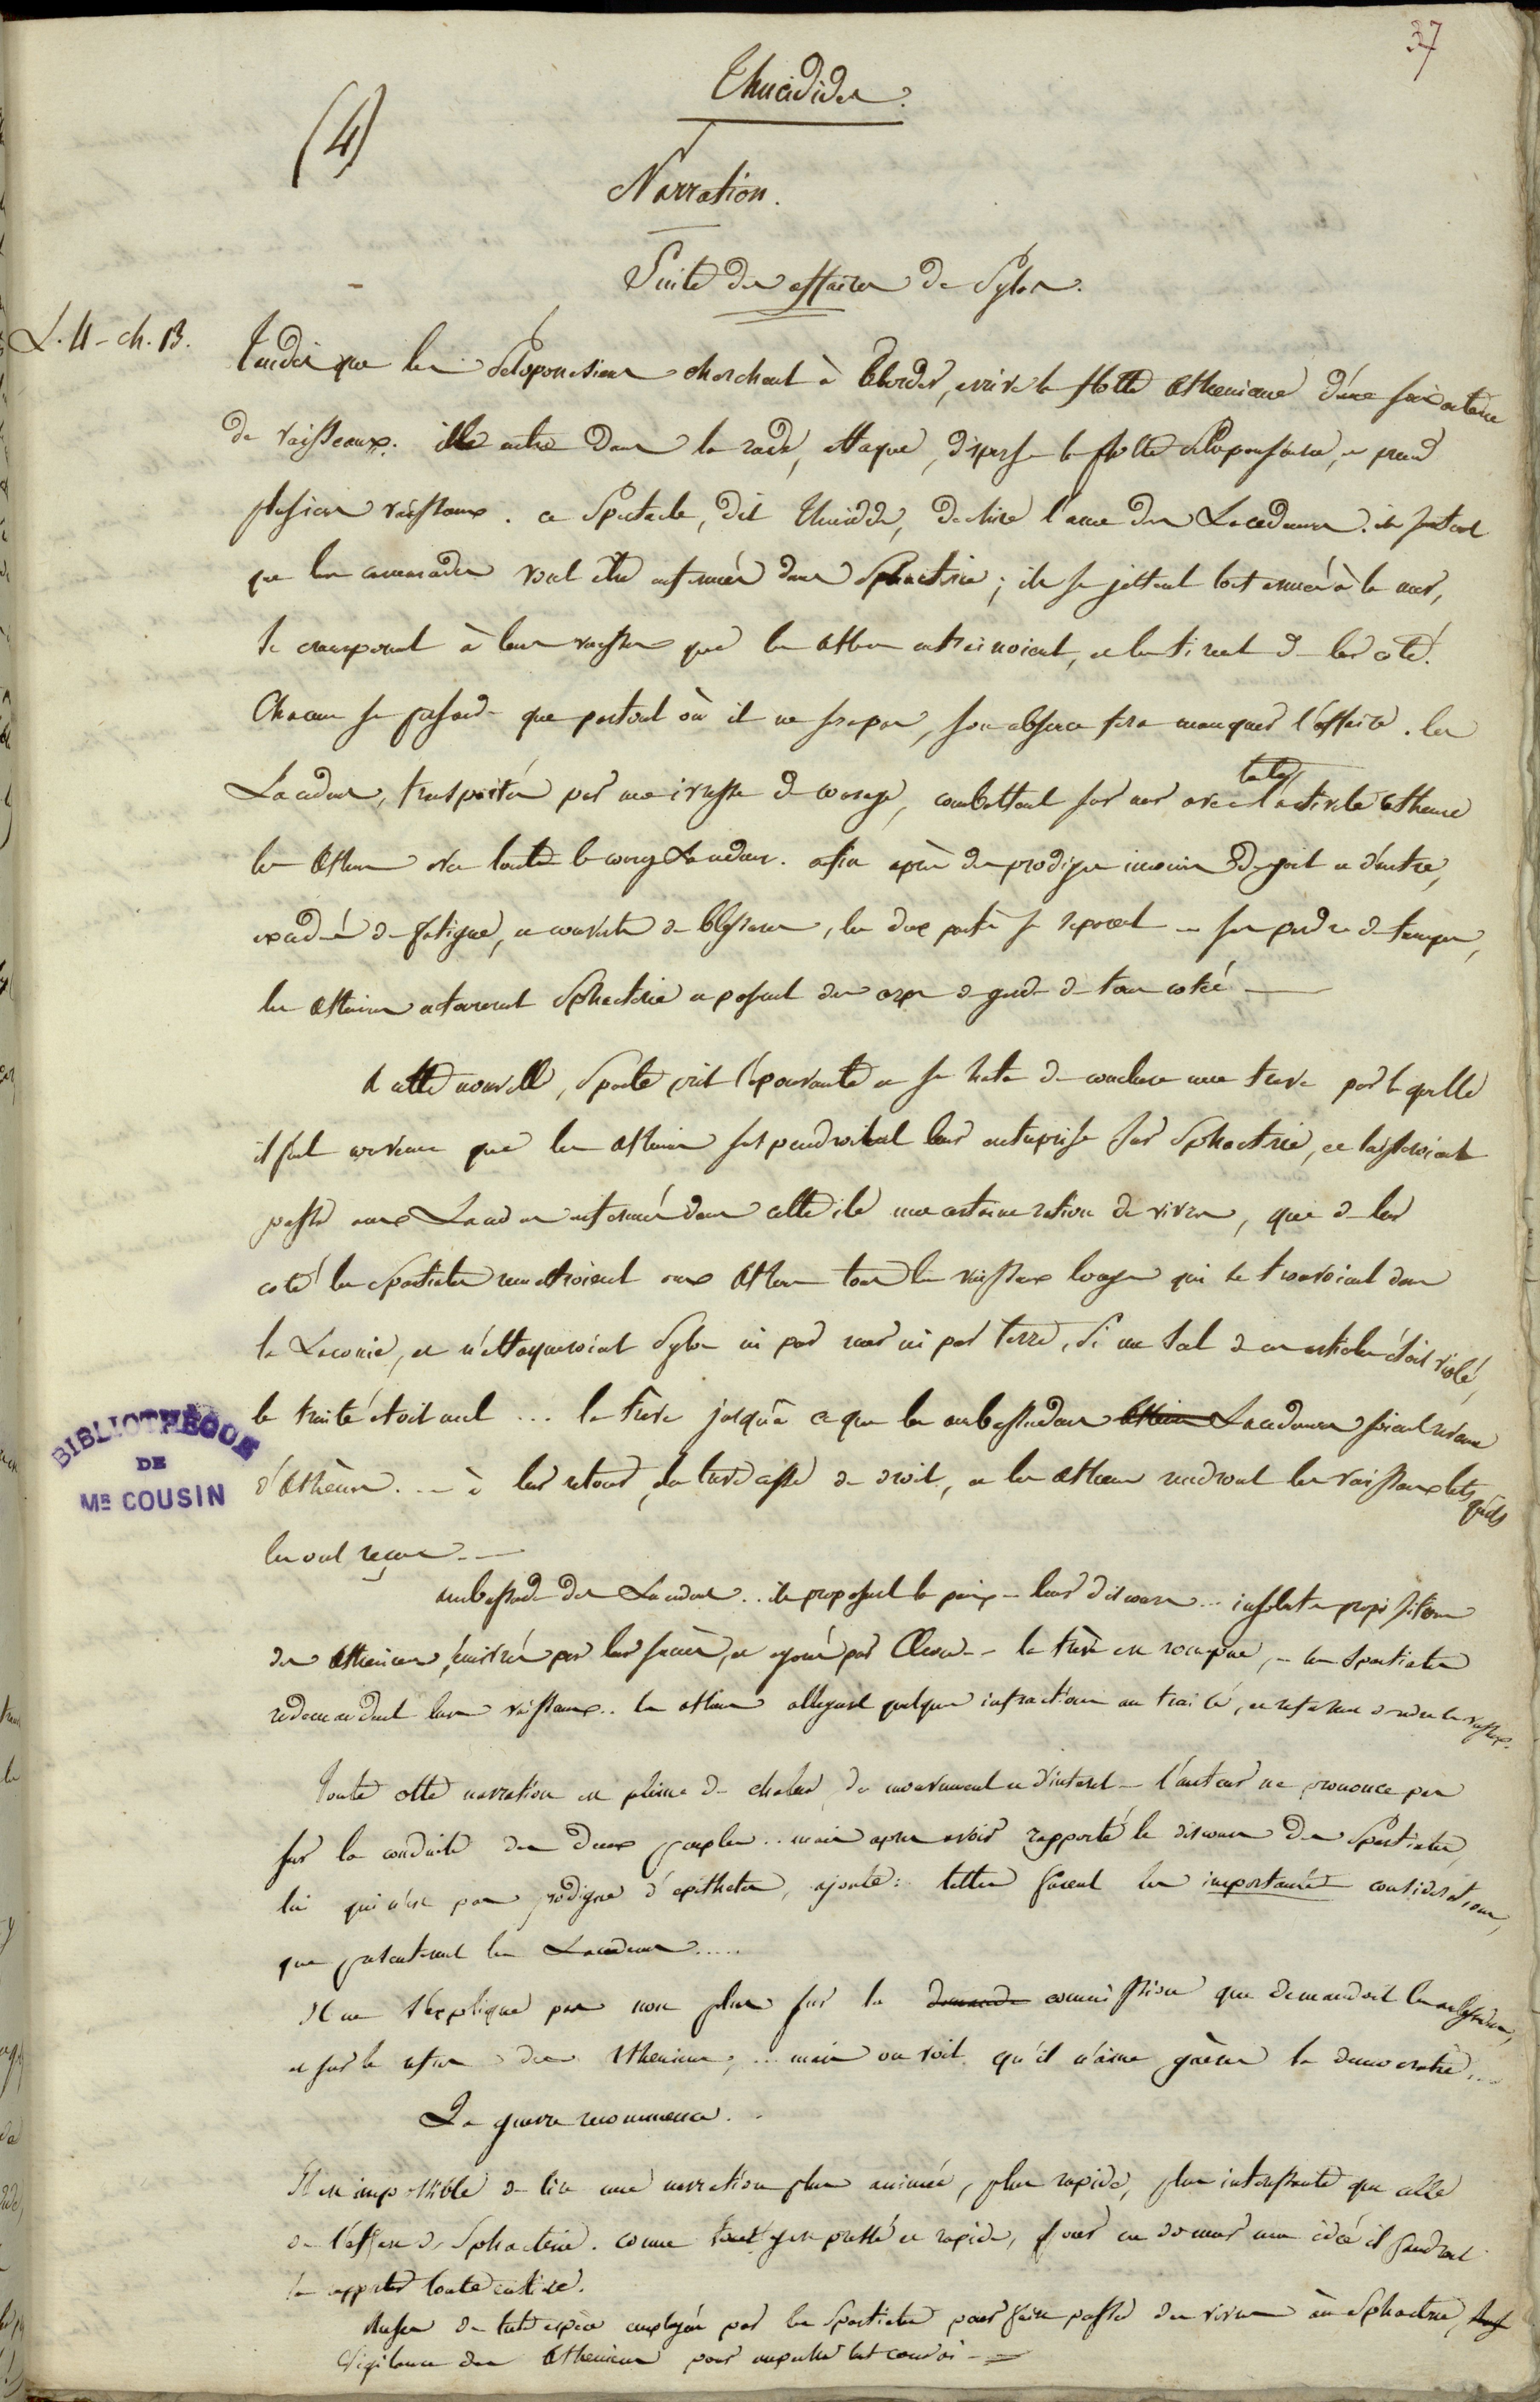 37
Thucidides.
(4)
Narration.
Suite des affaires de Pylos.
L. 4 - ch. 13.
Tandis que les Péloponesiens cherchent à aborder, arrive la flotte Athenienne d'une soixantaine
de vaisseaux. elle entre dans la rade, attaque, disperse la flotte Péloponésienne, en prend
plusieurs vaisseaux. ce spectacle, dit Thucidide, dechire l'ame des Lacedemon. ils sentent
que leurs camarades vont être enfermés dans Sphacterie; ils se jettent tout armés à la mer,
se cramponnent à leurs vaisseaux que les Athen entrainoient, et les tirent de leur coté.
Chacun se persuade que partout où il ne sera pas, son absence fera manquer l'affaire. les
Lacedem, transportés par une ivresse de courage, combattent sur mer avec toute l'activité athenie
les Athen avec toute le courage Lacedem. enfin après des prodiges inouis de part et d'autre,
excedés de fatigue, et couverts de blessures, les deux partis se separent - sans perdre de temps,
les Atheniens entourent Sphacterie et posent des corps de garde de tous cotés —
A cette nouvelle, Sparte prit l'épouvante et se hata de conclure une treve par laquelle
il fut convenu que les Athenien suspendroient leur entreprise sur Sphacterie, et laisseroient
passer aux Lacedem enfermés dans cette ile une certaine ration de vivres, que de leur
coté les Spartiates remettroient aux Athen tous les vaisseaux longs qui se trouvoient dans
la Laconie, et n'attaqueroient Pylos ni par mer ni par terre. Si un seul de ces articles étoit violé,
le traité étoit nul ... la treve jusqu'à ce que les ambassadeurs Lacedemon soient revenus
d'Athènes. - à leur retour, la treve cesse de droit, et les Athen rendront les vaisseaux tels qu'ils
les ont reçus —
ambassade des Lacedem .. ils proposent la paix - leur discours ... insolentes propositions
des Atheniens, enivrés par leur succès, et par Cleon - la trève est rompue, - les Spartiates
redemandent leurs vaisseaux .. les Athen alleguent quelques infractions au traité, et refusent de rendre les vaisseaux.
Toute cette narration est pleine de chaleur, de mouvement et d'interet - l'auteur ne prononce pas
sur la conduite des deux peuples .. mais apres avoir rapporté le discours des Spartiates,
lui qui n'est pas prodigue d'epithetes, ajoute: telles furent les importantes considerations,
que presenterent les Lacedem .....
Il ne s'explique pas non plus sur la demande commission que demandoit les ambassadeurs,
et sur le refus des Atheniens, ... mais on voit qu'il n'aime guères la democratie...
La guerre recommence. -
Il est impossible de lire une narration plus animée, plus rapide, plus interessante que celle
de l'affaire de Sphacterie. comme tout y est pressé et rapide, pour en donner une idée il faudroit
la rapporter toute entiere.
Ruses de toute espèce employées par les Spartiates pour faire passer des vivres à Sphacterie,
Vigilance des Atheniens pour empecher les convois —
BIBLIOTHÈQUE
DE
MR COUSIN